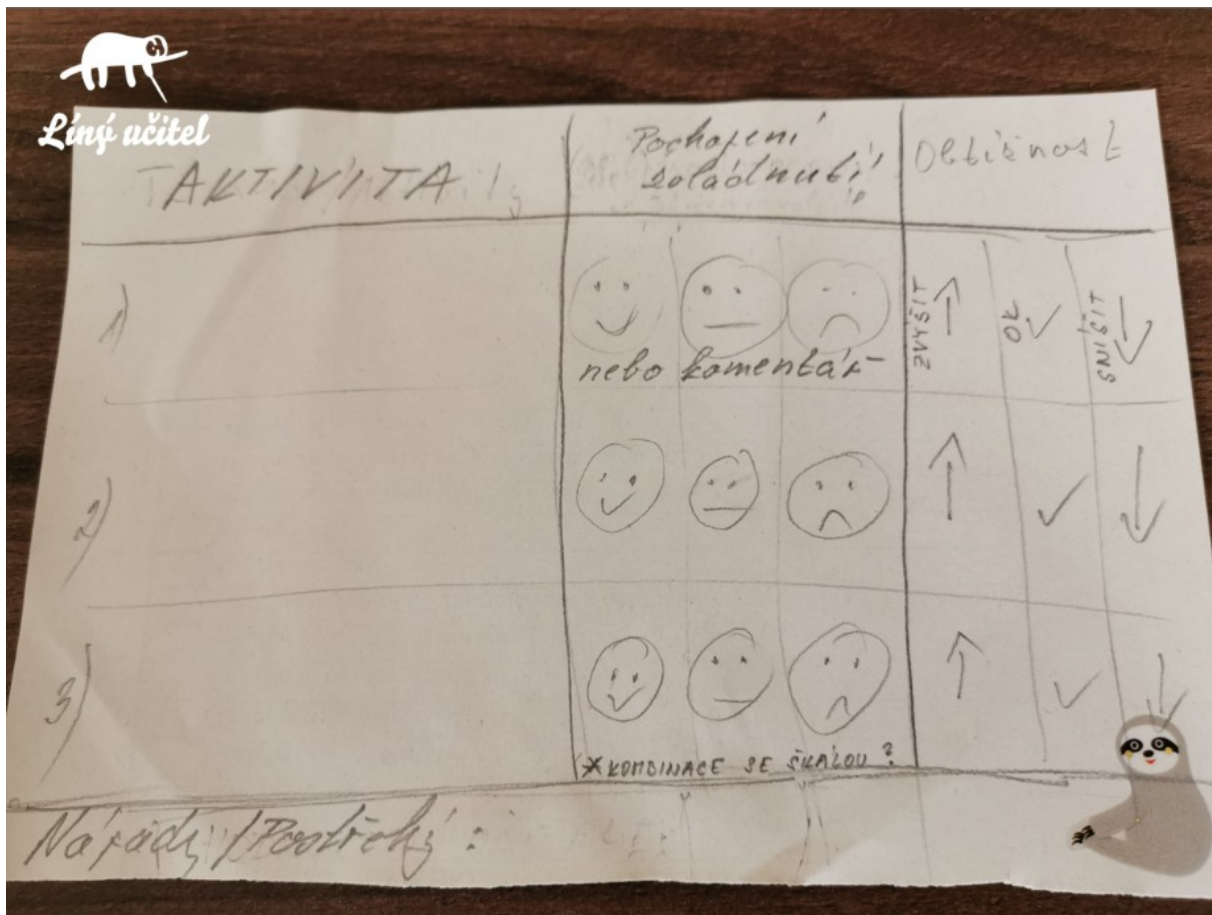 Líný učitel
AKTIVITA
Pochopení
zvládnutí
Obtížnost
1)
nebo komentář
ZVÝŠIT
OK
SNÍŽIT
2)
3)
*KOMBINACE SE ŠKÁLOU?
Nápady/Postřehy: